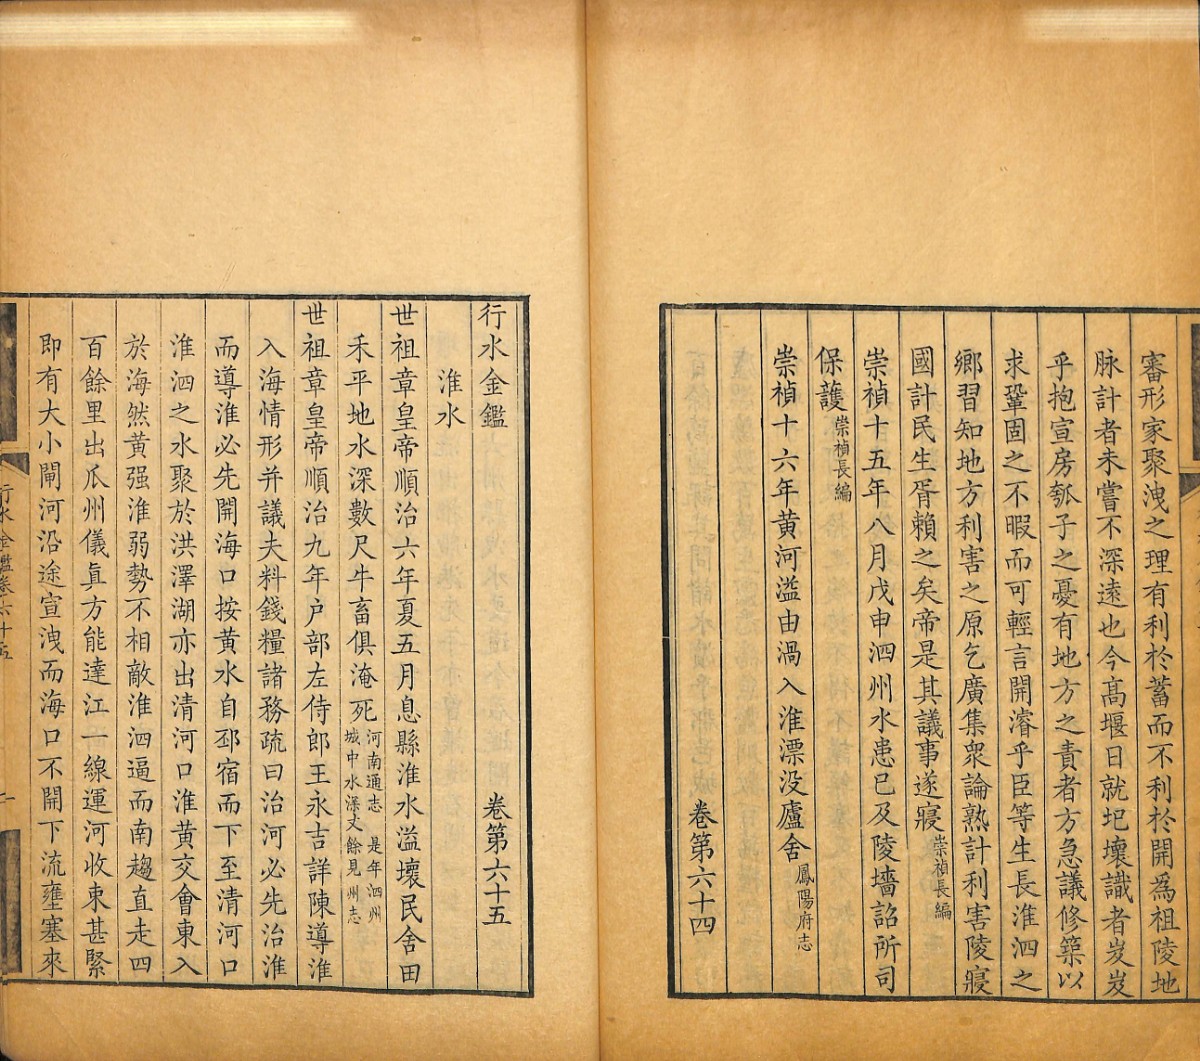 審形家聚洩之理有利於蓄而不利於開爲祖陵地
脉計者未嘗不深遠也今高堰日就圮壞識者岌岌
乎抱宣房瓠子之憂有地方之責者方急議修築以
求鞏固之不暇而可輕言開濬乎臣等生長淮泗之
鄉習知地方利害之原乞廣集衆論熟計利害陵寢
國計民生胥賴之矣帝是其議事遂寢崇禎長編
崇禎十五年八月戊申泗州水患已及陵墻詔所司
保護崇禎長編
崇禎十六年黄河溢由渦入淮漂没廬舍鳳陽府志
卷第六十四
行水金鑑 卷第六十五
淮水
世祖章皇帝順治六年夏五月息縣淮水溢壞民舍田
禾平地水深數尺牛畜俱淹死河南通志 是年泗州城中水深丈餘見州志
世祖章皇帝順治九年户部左侍郎王永吉詳陳導淮
入海情形并議夫料錢糧諸務疏曰治河必先治淮
而導淮必先開海口按黄水自邳宿而下至清河口
淮泗之水聚於洪澤湖亦出清河口淮黄交會東入
於海然黄强淮弱勢不相敵淮泗逼而南趨直走四
百餘里出瓜州儀眞方能達江一線運河收束甚緊
即有大小閘河沿途宣洩而海口不開下流壅塞來
行水金鑑卷六十五
一